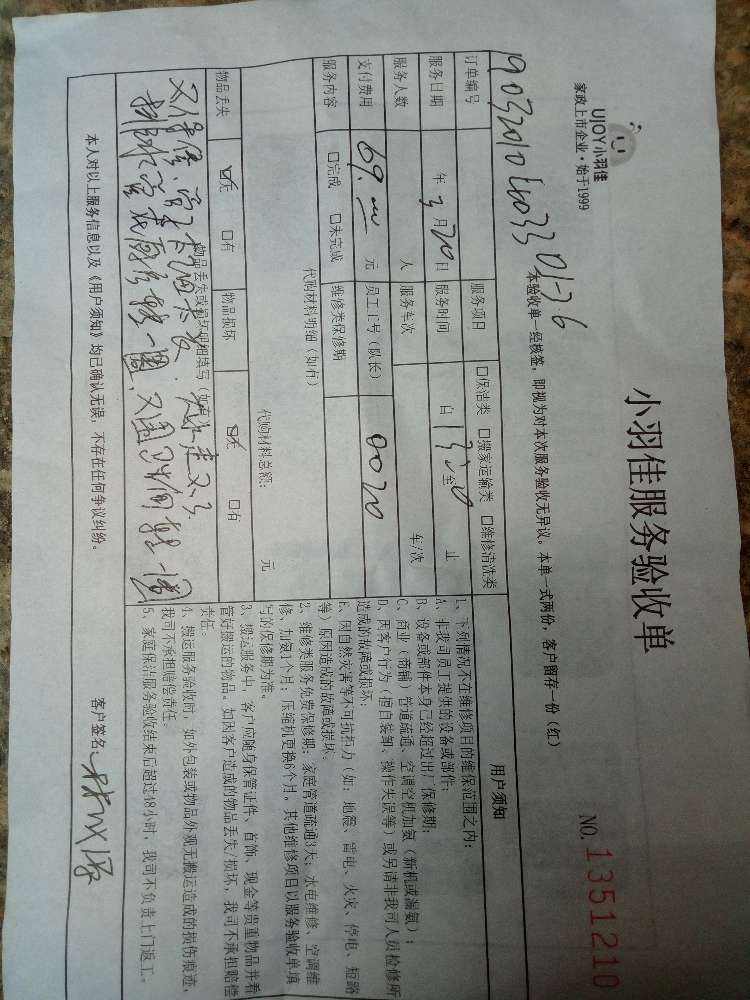 UJOY小羽佳
家政上市企业·始于1999
小羽佳服务验收单
NO. 1351210
本验收单一经核签，即视为对本次服务验收无异议。本单一式两份，客户留存一份（红）
订单编号
服务项目 □保洁类 □搬家运输类 □维修清洗类
服务日期 年3月20日 服务时间 自13:20至 止
服务人数 人 服务车次 车/次
支付费用 69.00元 员工工号（队长） 0020
服务内容 □完成 □未完成 维修类保修期
代购材料明细（如有）
代购材料总额： 元
物品丢失 ☑无 □有 物品损坏 ☑无 □有
物品丢失或损坏详细填写（如有）
用户须知
1、下列情况不在维修项目的维保范围之内：
A、非我司员工提供的设备或部件；
B、设备或部件本身已经超过出厂保修期；
C、商业（商铺）管道疏通、空调空机加氨（新机或漏氨）；
D、因客户行为（擅自装卸、操作失误等）或另请非我司人员检修所
造成的故障或损坏；
E、因自然灾害等不可抗拒力（如：地震、雷电、火灾、停电、短路
等）原因造成的故障或损坏。
2、维修类服务免费保修期：家庭管道疏通3天；水电维修、空调维
修、加氨1个月；压缩机更换6个月。其他维修项目以服务验收单填
写的保修期为准。
3、搬运服务中，客户应随身保管证件、首饰、现金等贵重物品并看
管好搬运的物品。如因客户造成的物品丢失/损坏，我司不承担赔偿
责任。
4、搬运服务验收时，如外包装或物品外观无搬运造成的损伤痕迹，
我司不承担赔偿责任。
5、家庭保洁服务验收结束后超过48小时，我司不负责上门返工。
本人对以上服务信息以及《用户须知》均已确认无误，不存在任何争议纠纷。
客户签名：